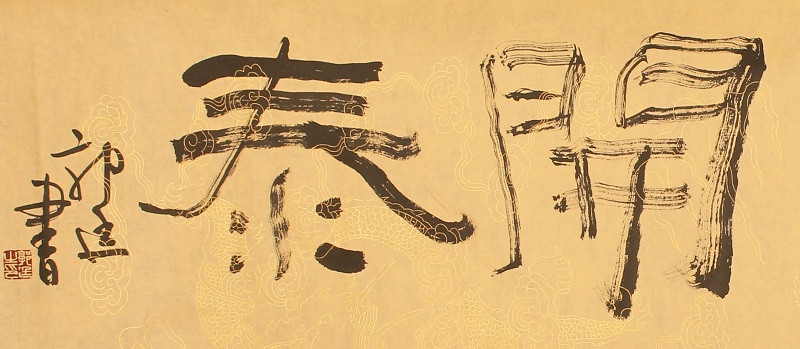 開泰
書